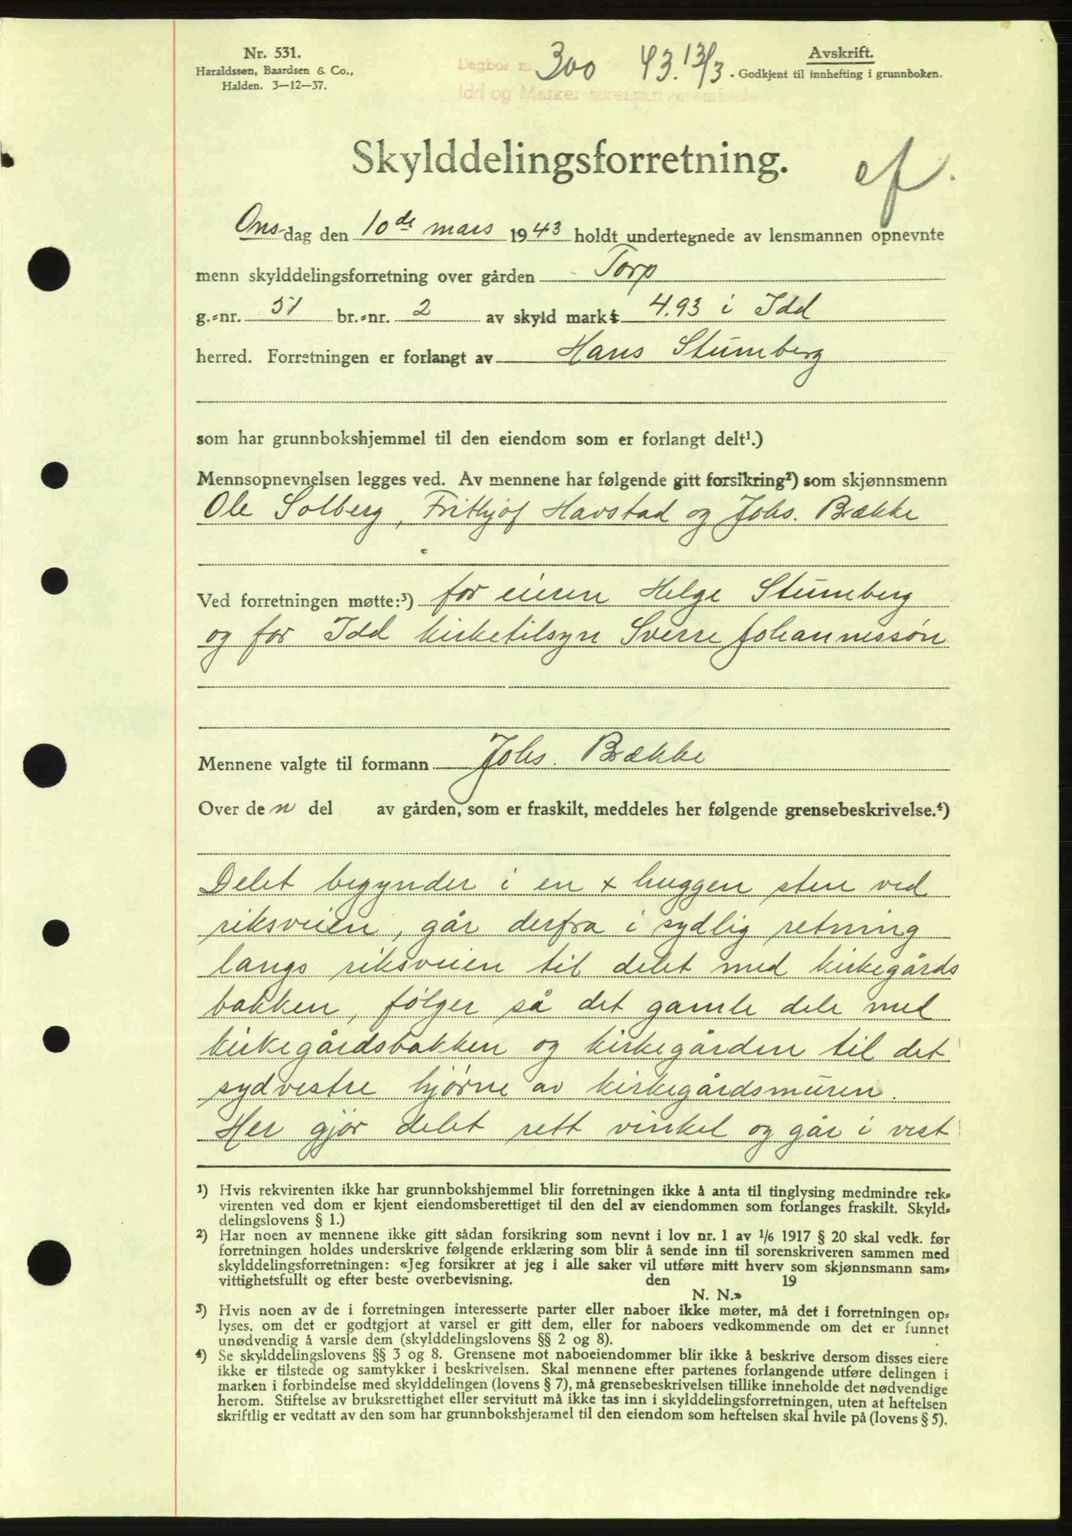 Nr. 531.
Haraldssen, Baardsen & Co.,
Halden. 3—12—37.
Dagbok nr. 300 1943. 13/3
Idd og Marker sorenskriverembede
Avskrift.
Godkjent til innhefting i grunnboken.
Skylddelingsforretning.
ef.
Onsdag den 10de mars 1943 holdt undertegnede av lensmannen opnevnte
menn skylddelingsforretning over gården Torp
g.-nr. 51 br.-nr. 2 av skyld mark 4.93 i Idd
herred. Forretningen er forlangt av Hans Stumberg
som har grunnbokshjemmel til den eiendom som er forlangt delt¹.)
Mennsopnevnelsen legges ved. Av mennene har følgende gitt forsikring²) som skjønnsmenn
Ole Solberg, Frithjof Havstad og Johs. Bække
Ved forretningen møtte:³) for eieren Helge Stumberg
og for Idd kirketilsyn Sverre Johannessøn
Mennene valgte til formann Johs. Bække
Over den del av gården, som er fraskilt, meddeles her følgende grensebeskrivelse.⁴)
Delet begynder i en x huggen sten ved
riksveien, går derfra i sydlig retning
langs riksveien til delet med kirkegårds
bakken, følger så det gamle dele med
kirkegårdsbakken og kirkegården til det
sydvestre hjørne av kirkegårdsmuren.
Her gjør delet rett vinkel og går i vest
¹) Hvis rekvirenten ikke har grunnbokshjemmel blir forretningen ikke å anta til tinglysing medmindre rek-
virenten ved dom er kjent eiendomsberettiget til den del av eiendommen som forlanges fraskilt. Skyld-
delingslovens § 1.)
²) Har noen av mennene ikke gitt sådan forsikring som nevnt i lov nr. 1 av 1/6 1917 § 20 skal vedk. før
forretningen holdes underskrive følgende erklæring som blir å sende inn til sorenskriveren sammen med
skylddelingsforretningen: «Jeg forsikrer at jeg i alle saker vil utføre mitt hverv som skjønnsmann sam-
vittighetsfullt og efter beste overbevisning. den 19
N. N.»
³) Hvis noen av de i forretningen interesserte parter eller naboer ikke møter, må det i forretningen op-
lyses, om det er godtgjort at varsel er gitt dem, eller for naboers vedkommende om det er funnet
unødvendig å varsle dem (skylddelingslovens §§ 2 og 8).
⁴) Se skylddelingslovens §§ 3 og 8. Grensene mot naboeiendommer blir ikke å beskrive dersom disses eiere
ikke er tilstede og samtykker i beskrivelsen. Skal mennene efter partenes forlangende utføre delingen i
marken i forbindelse med skylddelingen (lovens § 7), må grensebeskrivelsen tillike inneholde det nødvendige
herom. Stiftelse av bruksrettighet eller servitutt må ikke tas inn i skylddelingsforretningen, uten at heftelsen
skriftlig er vedtatt av den som har grunnbokshjemmel til den eiendom som heftelsen skal hvile på (lovens § 5).